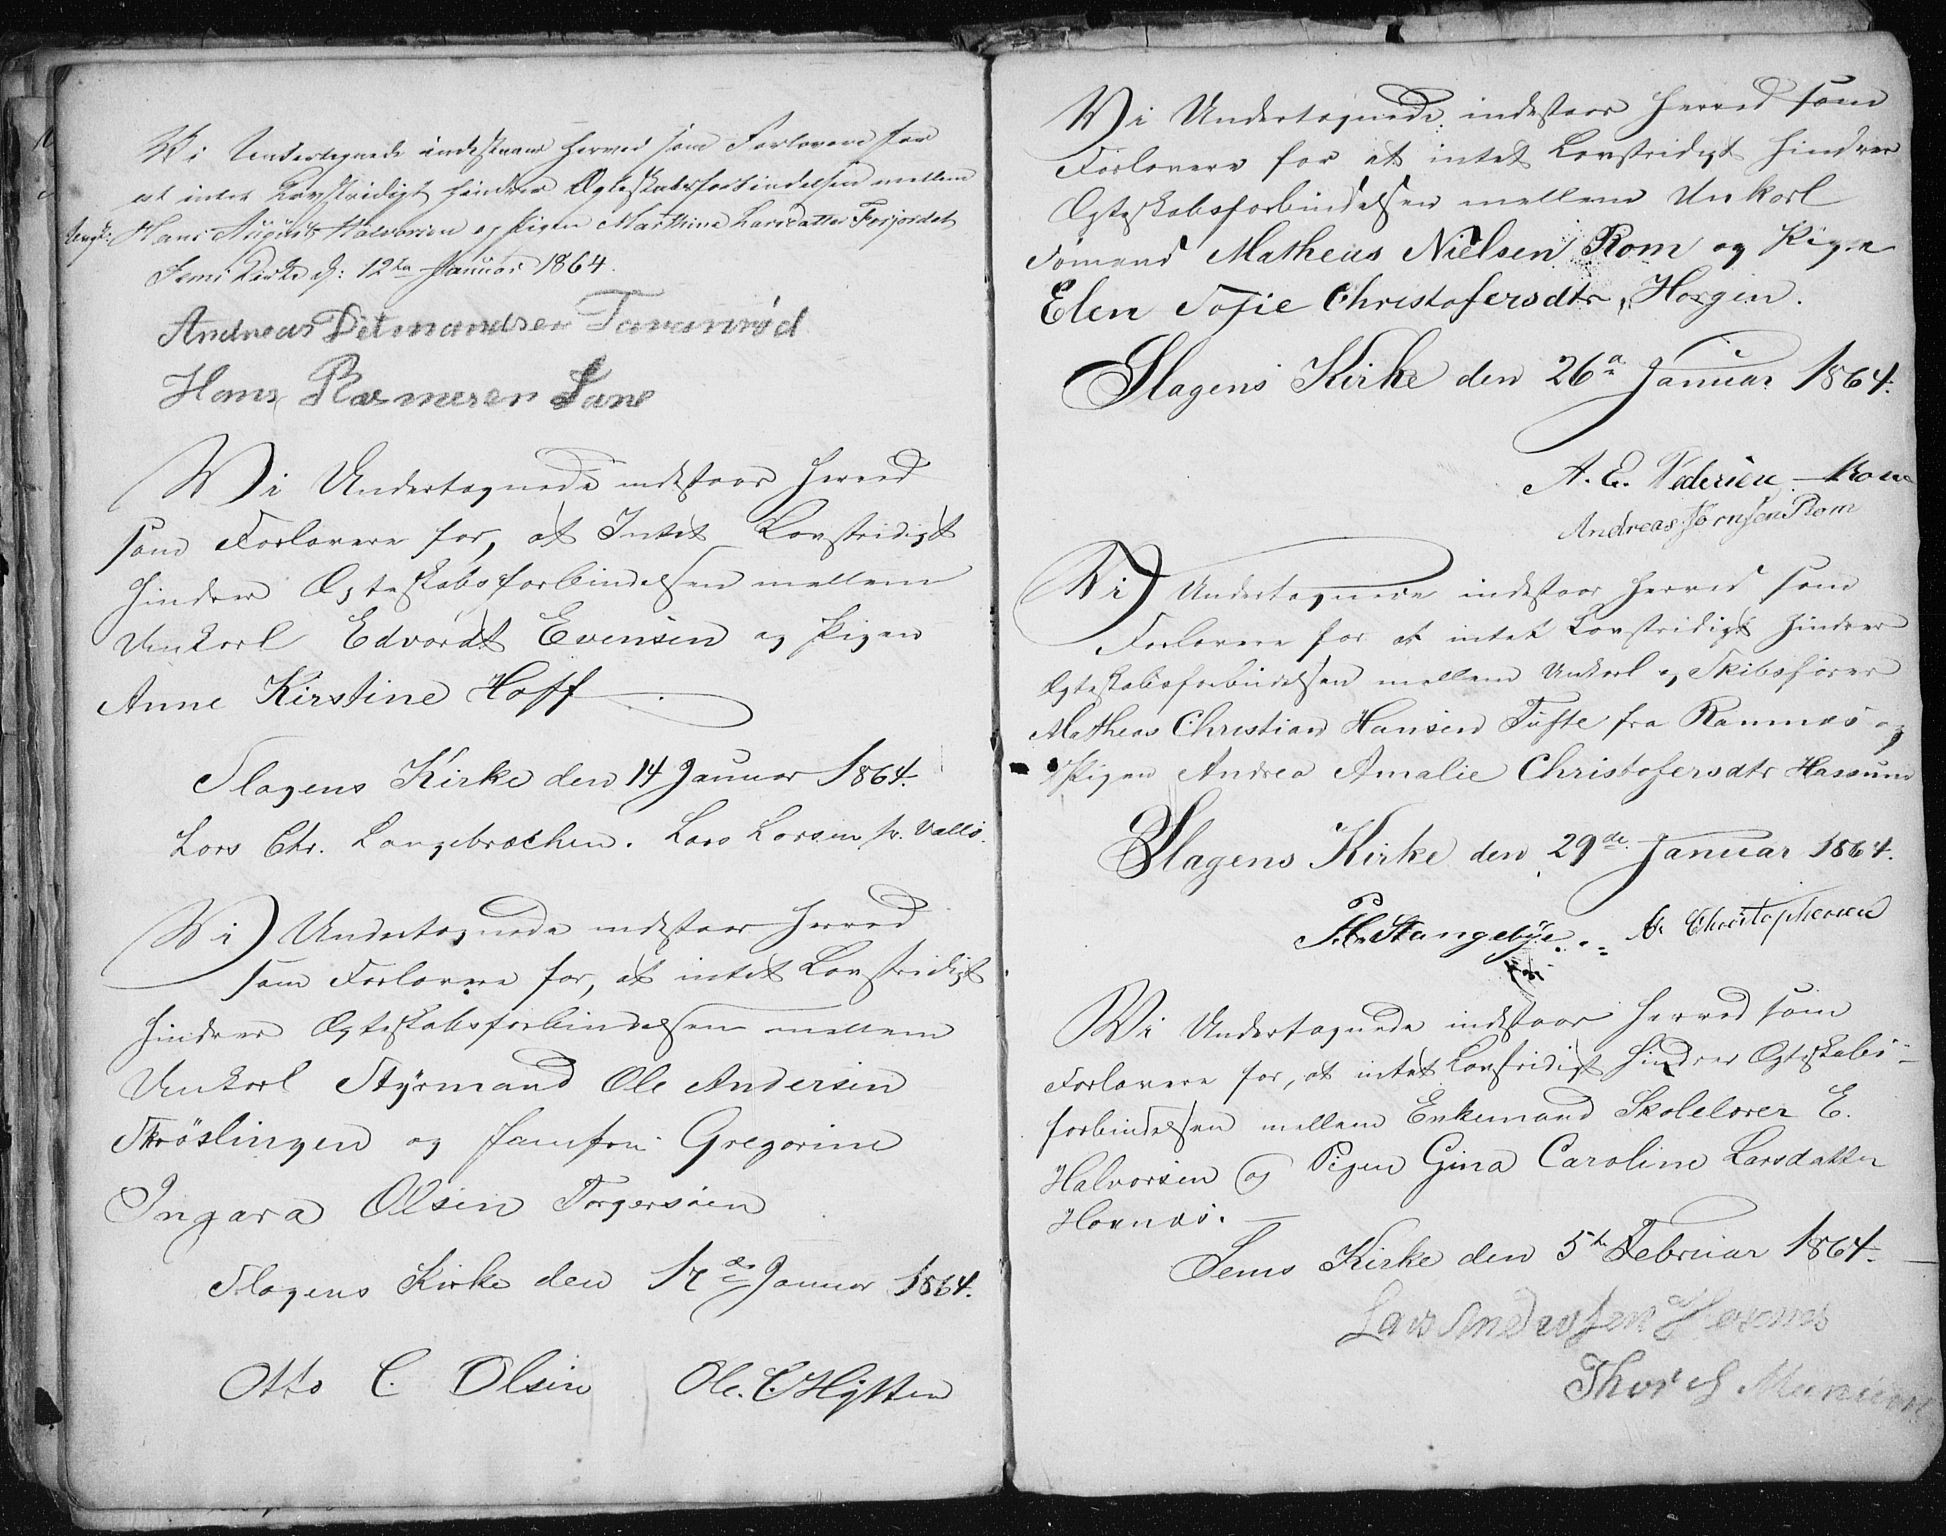 Vi Undertegnede indestaae herved som Forlovere for
at intet Lovstridigt hindrer Ægteskabsforbindelsen mellem
Ungk: Hans August Halvorsen og Pigen Marthine Larsdatter Fosjordet
Sems Kirke d: 12te Januar 1864.
Andreas Ditmandsen Tavanrød
Hans Rasmusen Sane
Vi Undertegnede indestaar herved
som Forlovere for, at Intet Lovstridigt
hindrer Ægteskabsforbindelsen mellem
Unkarl Edvardt Evensen og Pigen
Anne Kirstine Hoff
Slagens Kirke den 14 Januar 1864.
Lars Chr. Langebræchen. Lars Larsen, Vallö.
Vi Undertegnede indestaar herved
som Forlovere for, at intet Lovstridigt
hindrer Ægteskabsforbindelsen mellem
Unkarl Styrmand Ole Andersen
Træslingen og Jomfru Gregorine
Ingara Olsen Torgersøen
Slagens Kirke den 17de Januar 1864.
Otto C. Olsen Ole. C. Hytten
Vi Undertegnede indestaar herved som
Forlovere for at intet Lovstridigt hindrer
Ægteskabsforbindelsen mellem Unkarl
Sømand Matheus Nielsen Rom og Pigen
Elen Sofie Christofersdtr, Horgen.
Slagens Kirke den 26de Januar 1864.
A. E. Pedersen Rom
Andreas Jørnsen Rom
Vi Undertegnede indestaar herved som
Forlovere for at intet Lovstridigt hindrer
Ægteskabsforbindelsen mellem Unkarl og Skibsfører
Matheas Christian Hansen Tufte fra Ramnæs og
Pigen Andrea Amalie Christofersdtr Hassum
Slagens Kirke den 29de Januar 1864.
H. Stangebye A. Christophersen
Vi Undertegnede indestaar herved som
Forlovere for, at intet Lovstridigt hindrer Ægteskabs-
forbindelsen mellem Enkemand Skolelærer E.
Halvorsen og Pigen Gina Caroline Larsdatter
Hovnæs.
Sems Kirke den 5te Februar 1864.
Lars Andersen Hovnes
Thor